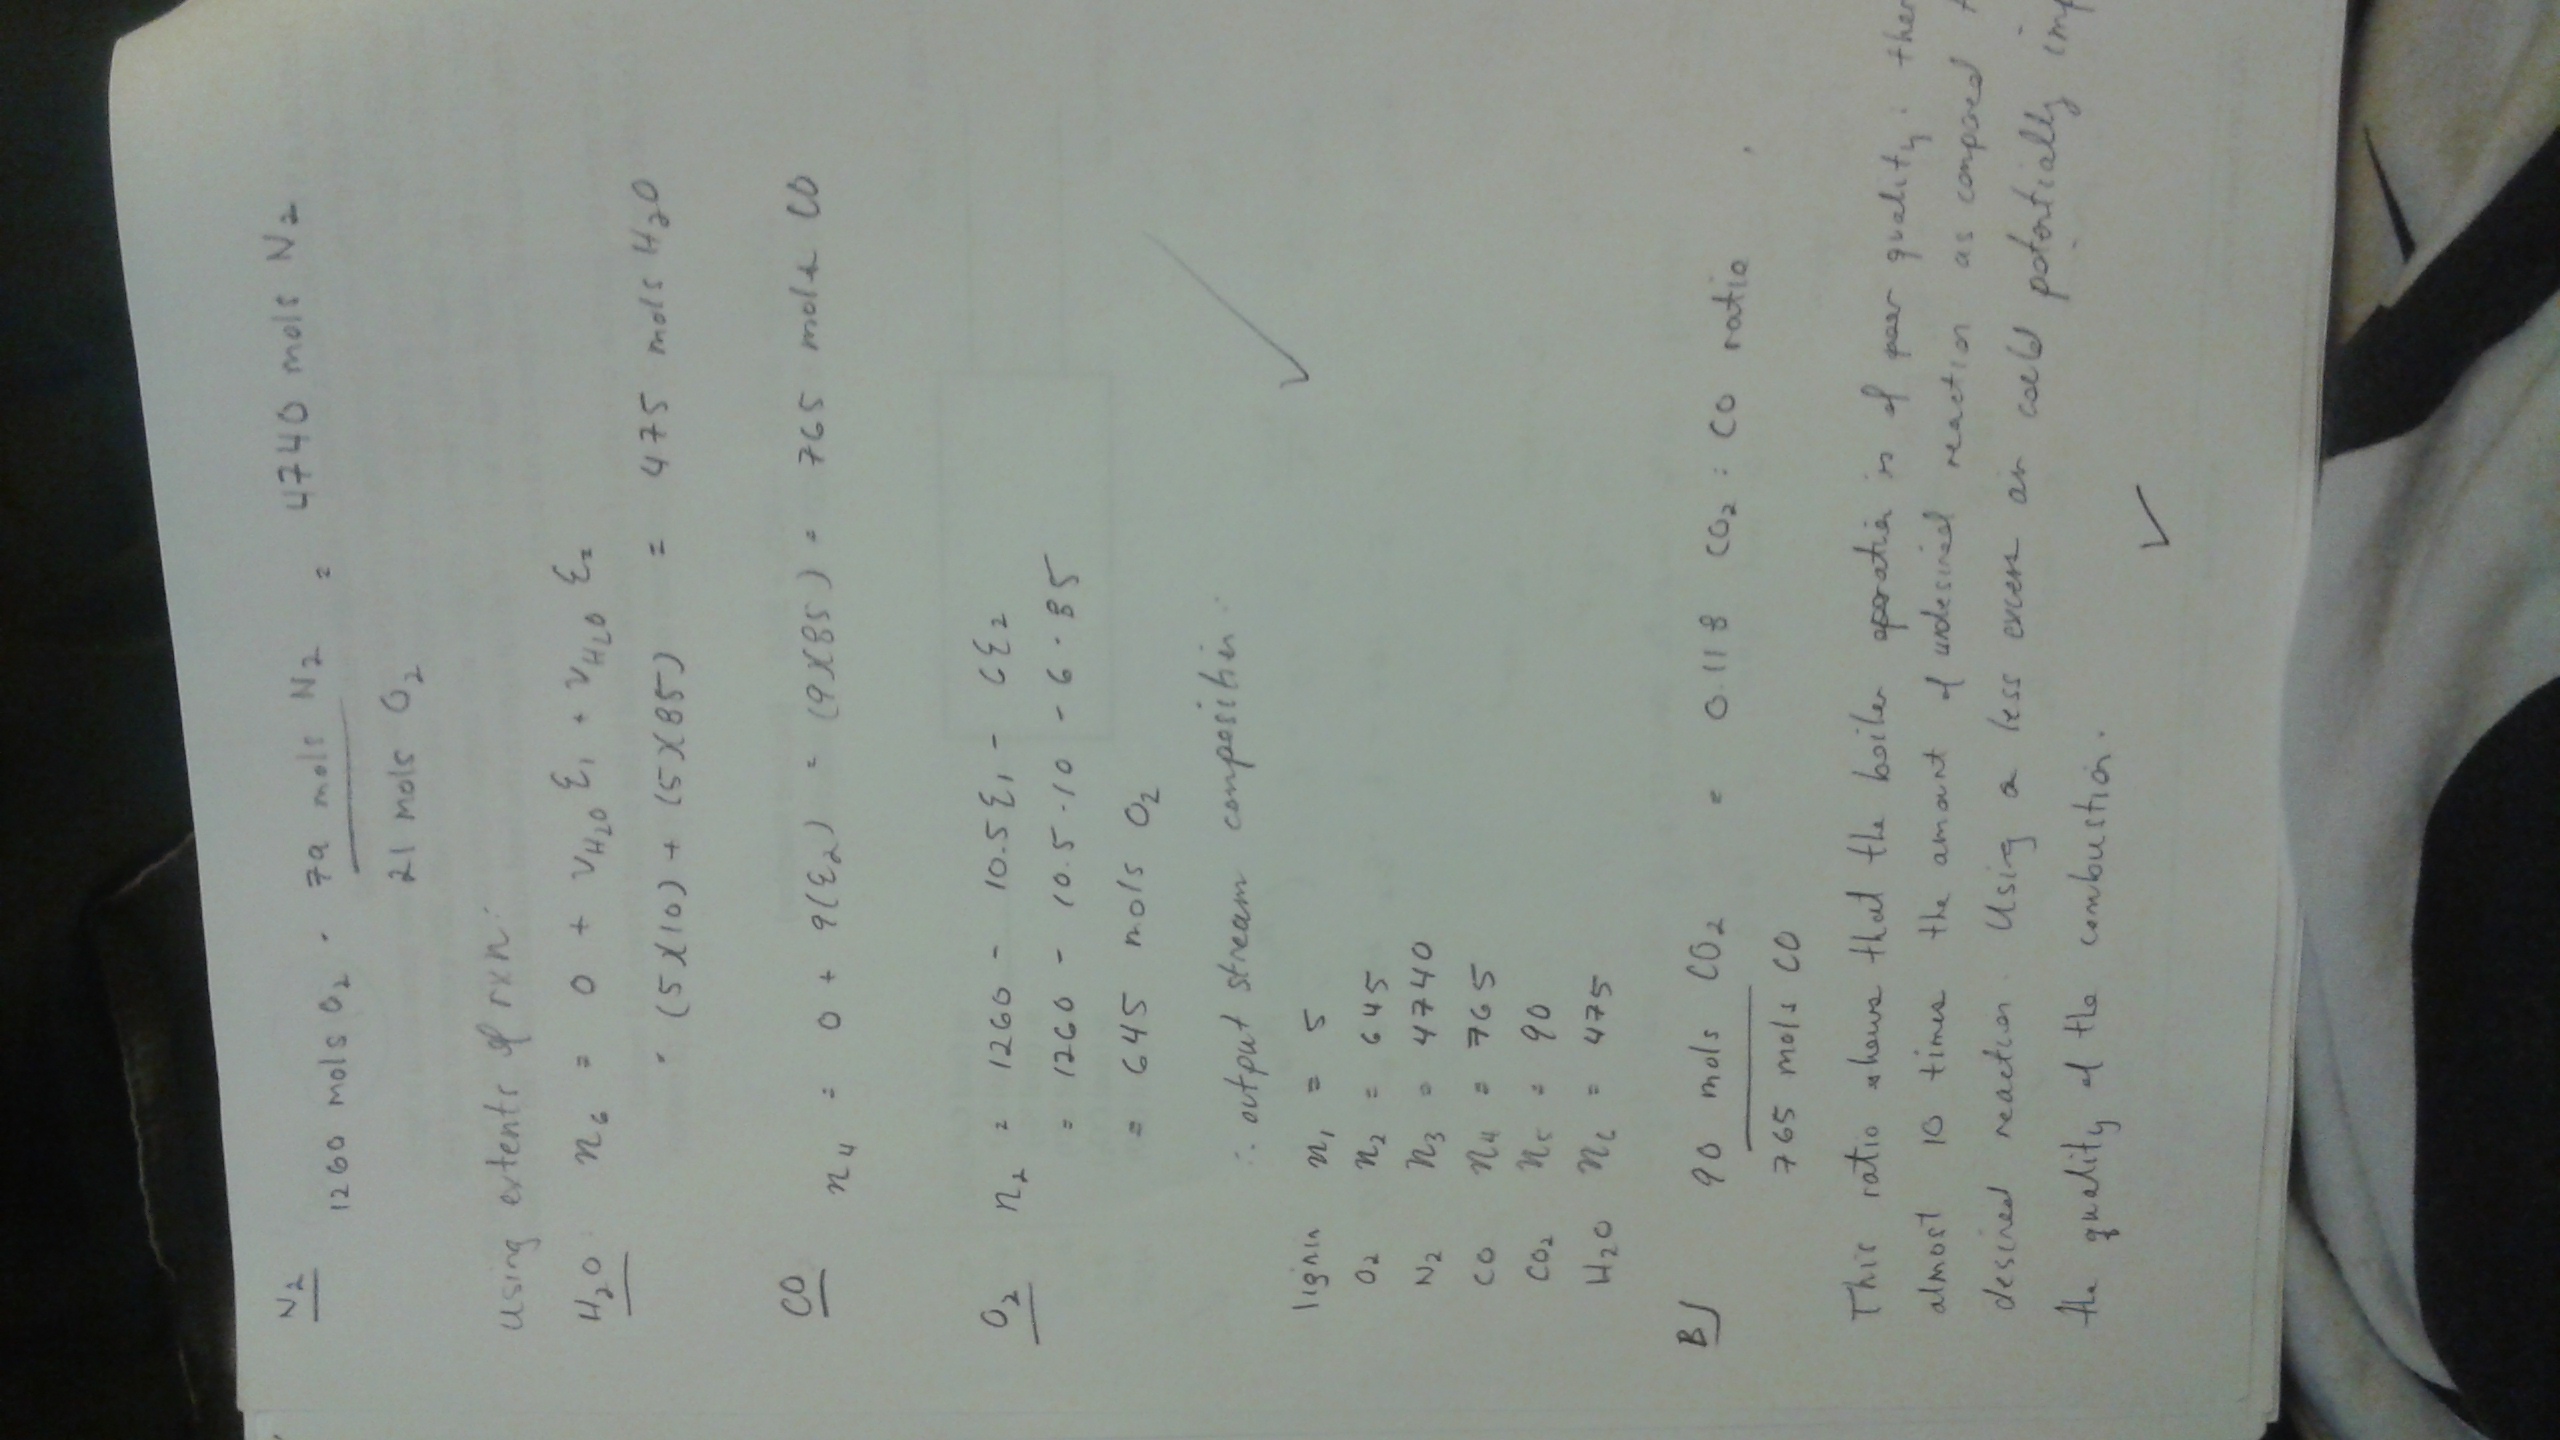 N₂
1260 mols O₂ · 79 mols N₂ = 4740 mols N₂
21 mols O₂
using extents of rxn:
H₂O: n₆ = 0 + νH₂O ξ₁ + νH₂O ξ₂
= (5)(10) + (5)(85) = 475 mols H₂O
CO
n₄ = 0 + 9(ξ₂) = (9)(85) = 765 mols CO
O₂ n₂ = 1260 - 10.5ξ₁ - 6ξ₂
= 1260 - 10.5·10 - 6·85
= 645 mols O₂
∴ output stream composition:
lignin n₁ = 5
O₂ n₂ = 645
N₂ n₃ = 4740
CO n₄ = 765
CO₂ n₅ = 90
H₂O n₆ = 475
B) 90 mols CO₂ = 0.118 CO₂ : CO ratio
765 mols CO
This ratio shows that the boiler operation is of poor quality: ther
almost 10 times the amount of undesired reaction as compared
desired reaction. Using a less excess air could potentially imp
the quality of the combustion.